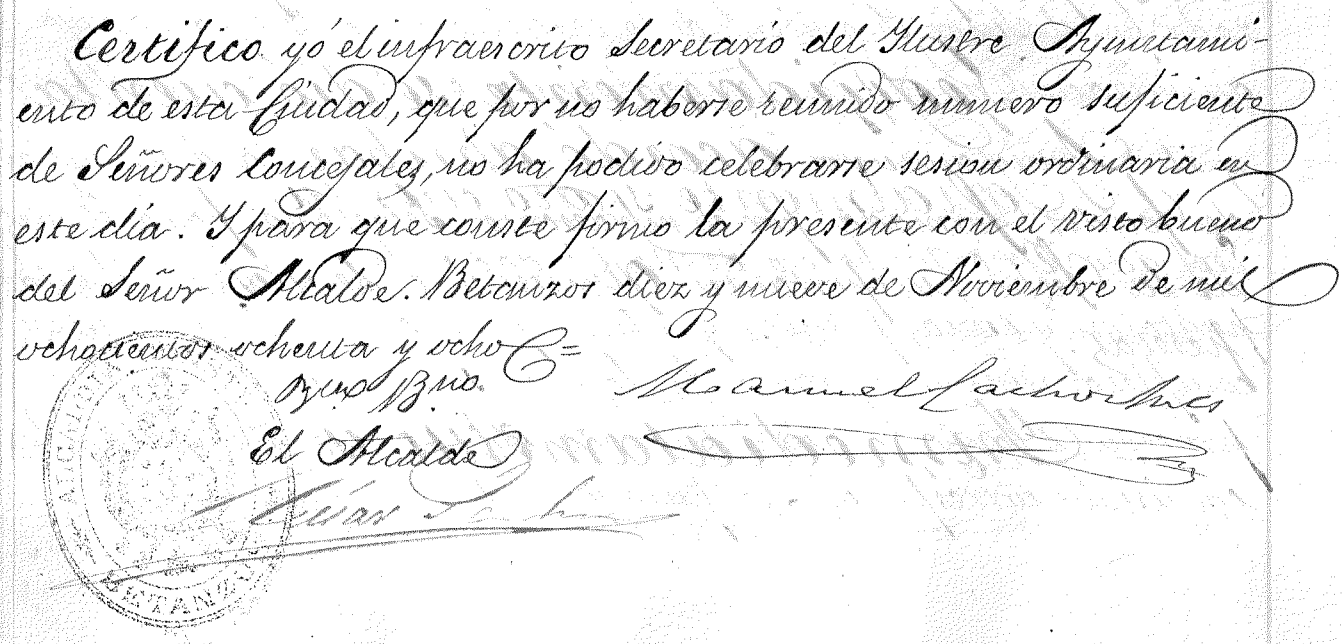 Certifico yó el infraescrito Secretario del Ilustre Ayuntami-
ento de esta Ciudad, que por no haberse reunido numero suficiente
de Señores Concejales, no ha podido celebrarse sesion ordinaria en
este día. Y para que conste firmo la presente con el visto bueno
del Señor Alcalde. Betanzos diez y nueve de Noviembre de mil
ochocientos ochenta y ocho=
Manuel
El Alcalde
BETANZOS